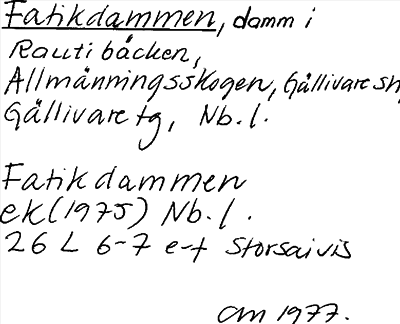 Fatikdammen, damm i
Rautibäcken,
Allmänningsskogen, Gällivare sn,
Gällivare tg, Nb. l.
Fatikdammen
ek (1975) Nb. l.
26 L 6-7 e-f Storsaivis
am 1977.